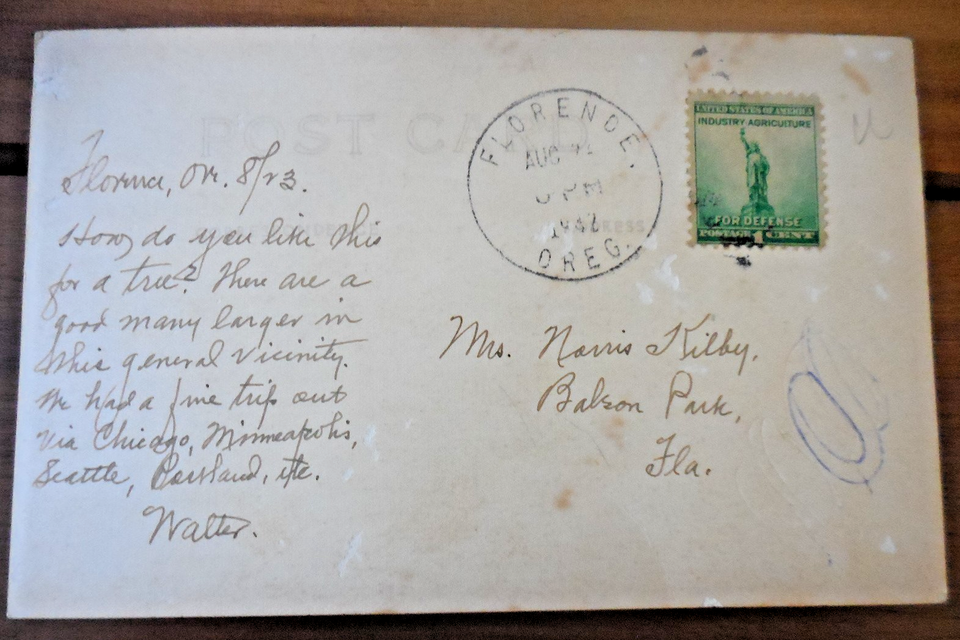 POST CARD
Florence, Or. 8/23.
How do you like this
for a tree? There are a
good many larger in
this general vicinity.
We had a fine trip out
via Chicago, Minneapolis,
Seattle, Portland, etc.
Walter.
FLORENCE.
AUG
PM
1942
OREG.
UNITED STATES OF AMERICA
INDUSTRY-AGRICULTURE
FOR DEFENSE
POSTAGE 1 CENT
Mrs. Norris Kilby,
Babson Park,
Fla.